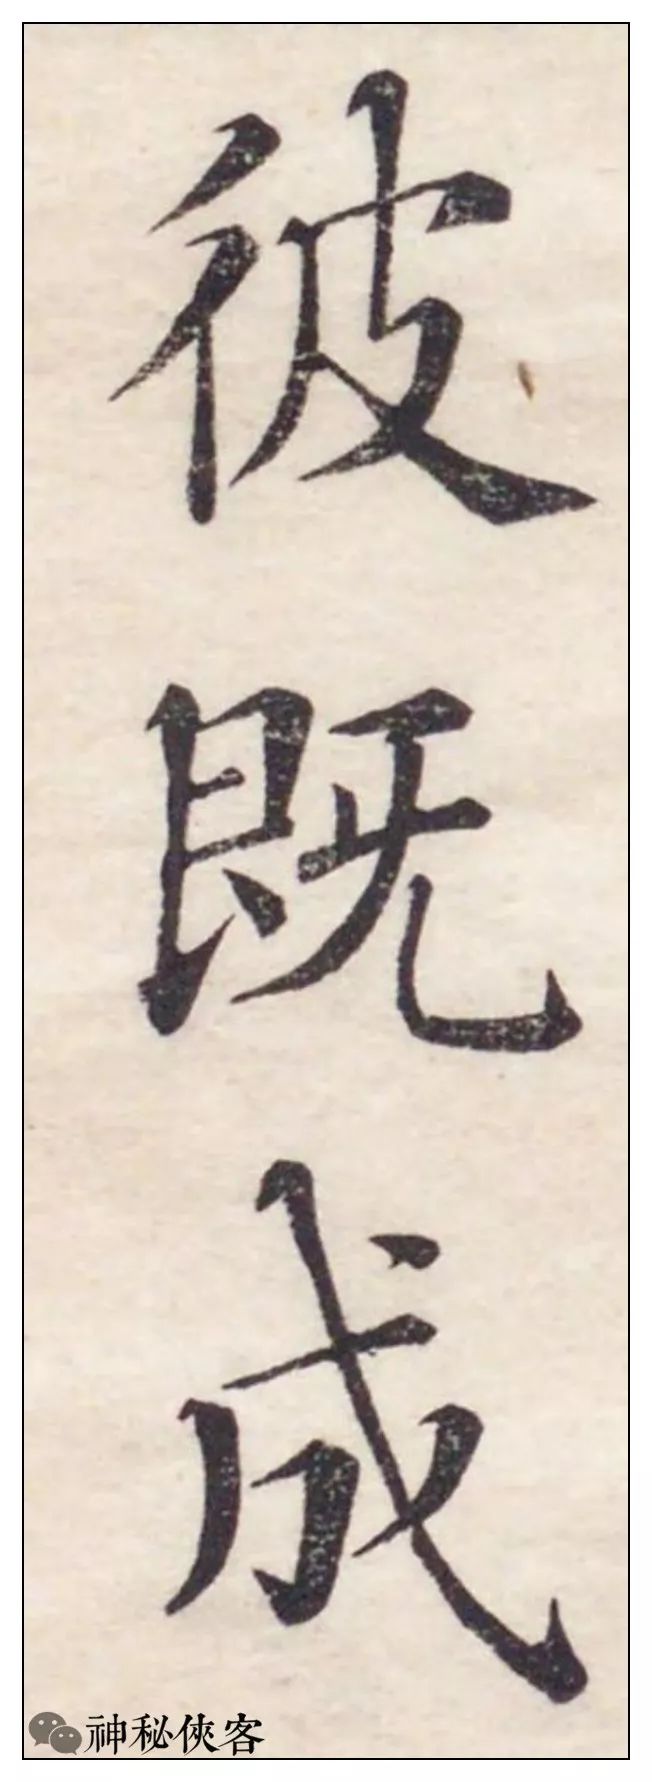 彼既成
神秘俠客